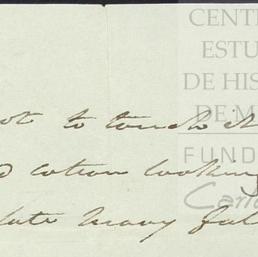 CENT
ESTU
DE HIS
DE M
FUND
Car
to touch it
cotton looking
late many fal